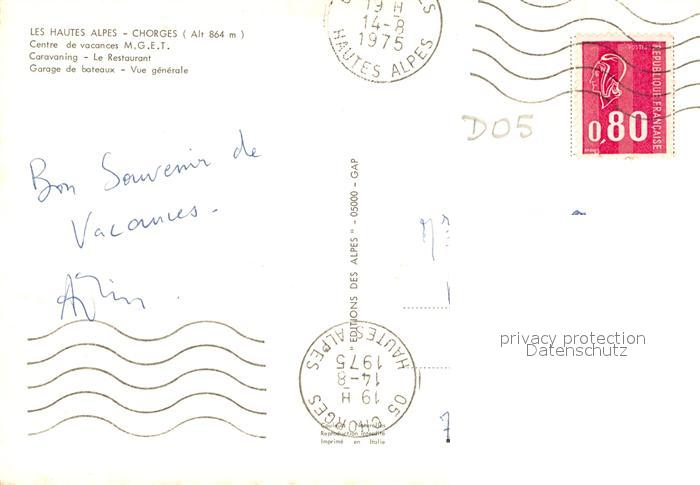 LES HAUTES ALPES - CHORGES ( Alt 864 m )
Centre de vacances M.G.E.T.
Caravaning - Le Restaurant
Garage de bateaux - Vue générale
19 H
14-8
1975
HAUTES ALPES
REPUBLIQUE FRANÇAISE
0,80
D05
Bon Souvenir de
Vacances.
" EDITIONS DES ALPES " - 05000 - GAP
05 CHORGES
19 H
14-8
1975
HAUTES ALPES
privacy protection
Datenschutz
Reproduction interdite
Imprimé en Italie